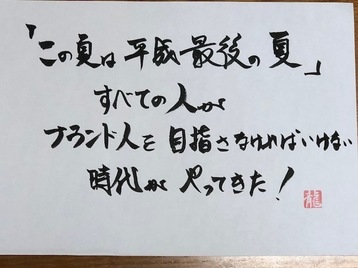 「この夏は平成最後の夏」
すべての人が
ブランド人を目指さなければいけない
時代がやってきた！
龍